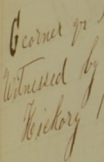 corner
Witnessed by
Hickory